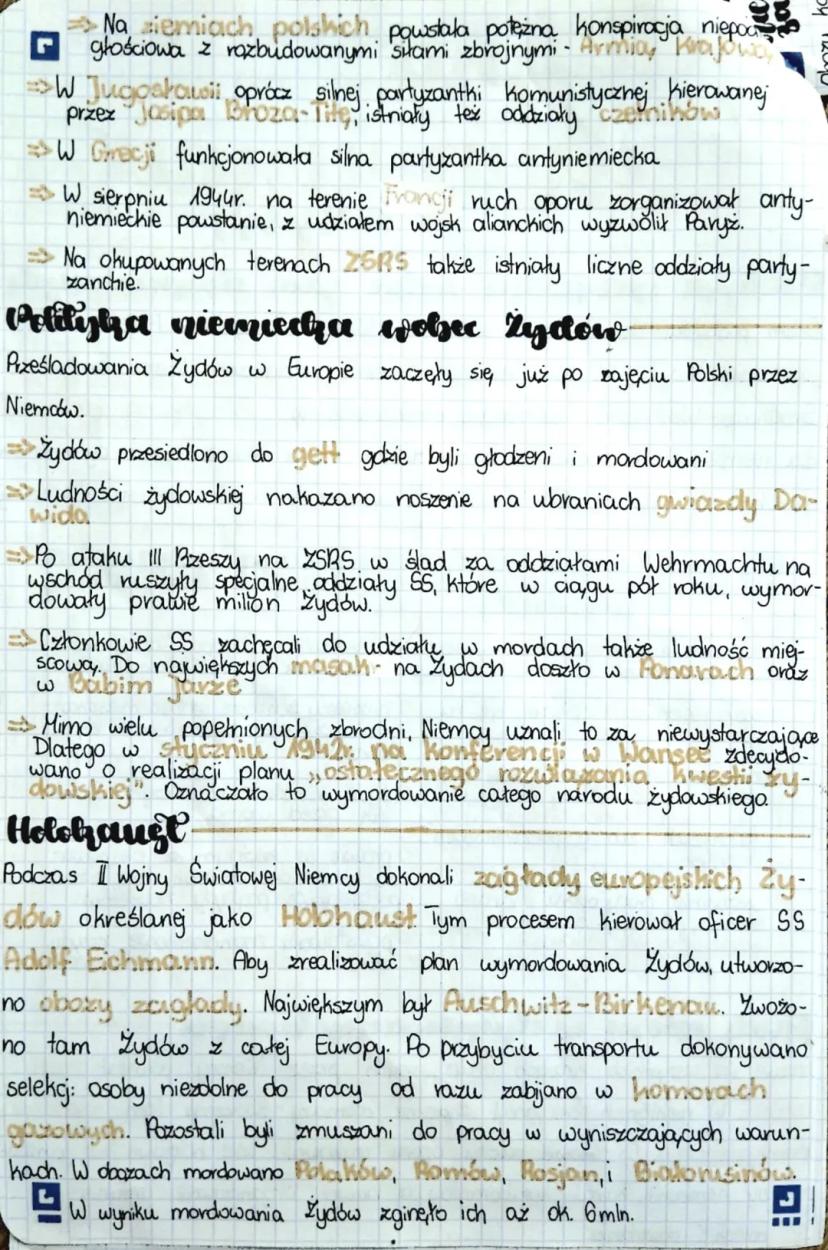 ⇒ Na ziemiach polskich powstała potężna konspiracja niepod
głościowa z rozbudowanymi siłami zbrojnymi - Armią Krajową,
⇒ W Jugosławii oprócz silnej partyzantki komunistycznej kierowanej
przez Josipa Broza-Titę, istniały też oddziały czetników
⇒ W Grecji funkcjonowała silna partyzantka antyniemiecka
⇒ W sierpniu 1944r. na terenie Francji ruch oporu zorganizował anty-
niemieckie powstanie, z udziałem wojsk alianckich wyzwolił Paryż.
⇒ Na okupowanych terenach ZSRS także istniały liczne oddziały party-
zanckie.
Polityka niemiecka wobec Żydów
Prześladowania Żydów w Europie zaczęły się już po zajęciu Polski przez
Niemców.
⇒ Żydów przesiedlono do gett gdzie byli głodzeni i mordowani
⇒ Ludności żydowskiej nakazano noszenie na ubraniach gwiazdy Da-
wida
⇒ Po ataku III Rzeszy na ZSRS w ślad za oddziałami Wehrmachtu na
wschód ruszyły specjalne oddziały SS, które w ciągu pół roku, wymor-
dowały prawie milion Żydów.
⇒ Członkowie SS zachęcali do udziału w mordach także ludność miej-
scową. Do największych masakr na Żydach doszło w Ponarach oraz
w Babim Jarze
⇒ Mimo wielu popełnionych zbrodni, Niemcy uznali to za niewystarczające
Dlatego w styczniu 1942r. na konferencji w Wansee zdecydo-
wano o realizacji planu „ostatecznego rozwiązania kwestii ży-
dowskiej". Oznaczało to wymordowanie całego narodu żydowskiego.
Holokaust
Podczas II Wojny Światowej Niemcy dokonali zagłady europejskich Ży-
dów określanej jako Holokaust. Tym procesem kierował oficer SS
Adolf Eichmann. Aby zrealizować plan wymordowania Żydów, utworzo-
no obozy zagłady. Największym był Auschwitz-Birkenau. Zwożo-
no tam Żydów z całej Europy. Po przybyciu transportu dokonywano
selekcj: osoby niezdolne do pracy od razu zabijano w komorach
gazowych. Pozostali byli zmuszani do pracy w wyniszczających warun-
kach. W obozach mordowano Polaków, Romów, Rosjan, i Białorusinów.
W wyniku mordowania Żydów zginęło ich aż ok. 6mln.